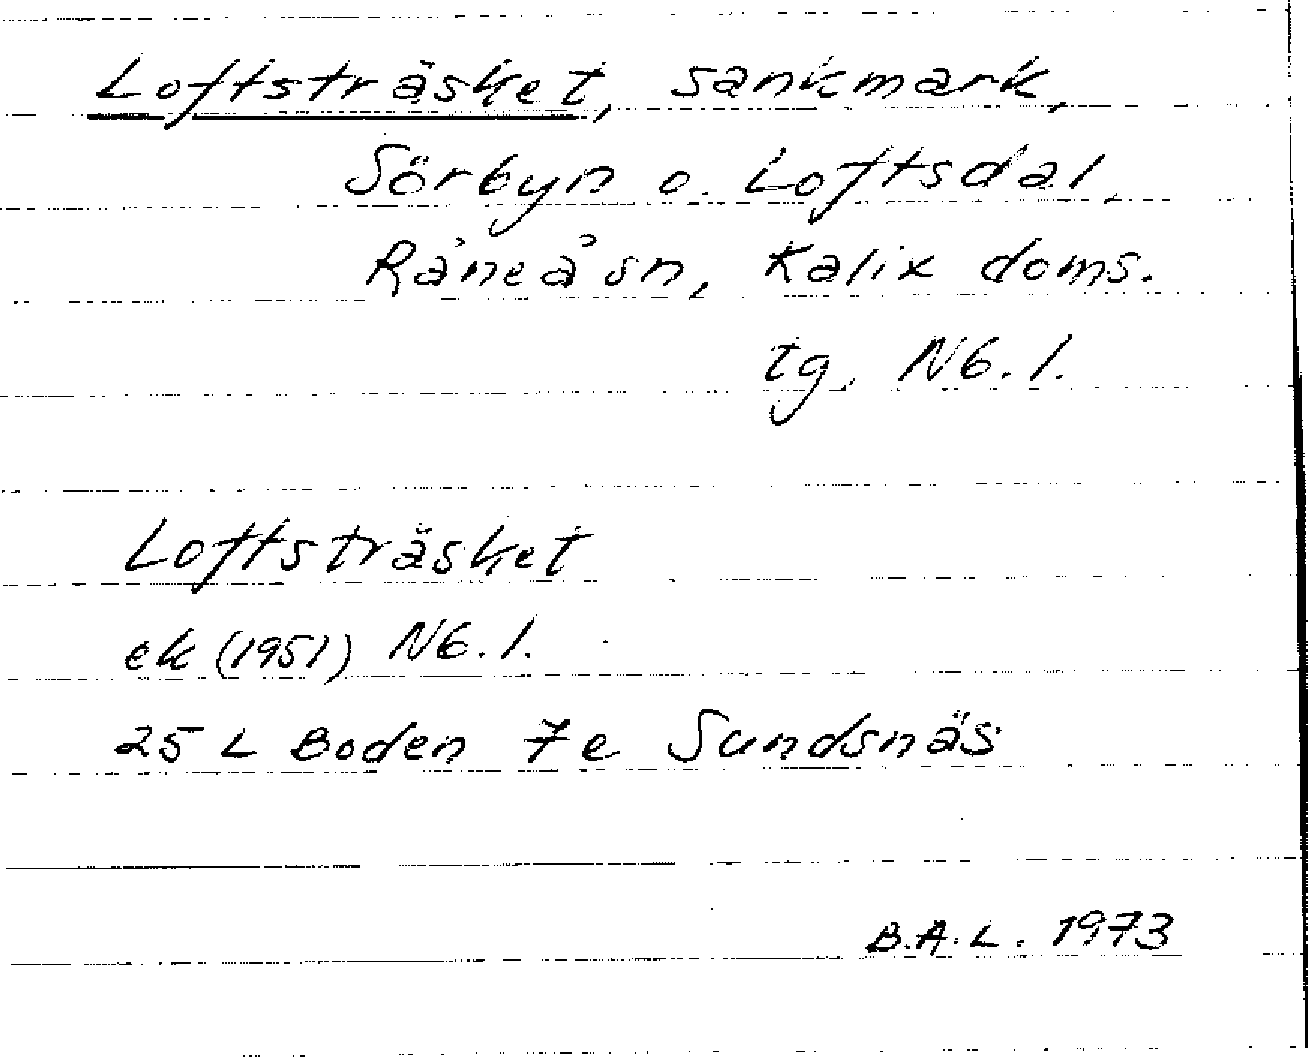 Loftsträsket, sankmark,
Sörbyn o. Loftsdal,
Råneå sn, Kalix doms.
tg, N6.1.
Loftsträsket
ek (1951) N6.1.
25 L Boden 7e Sundsnäs
B.A.L. 1973